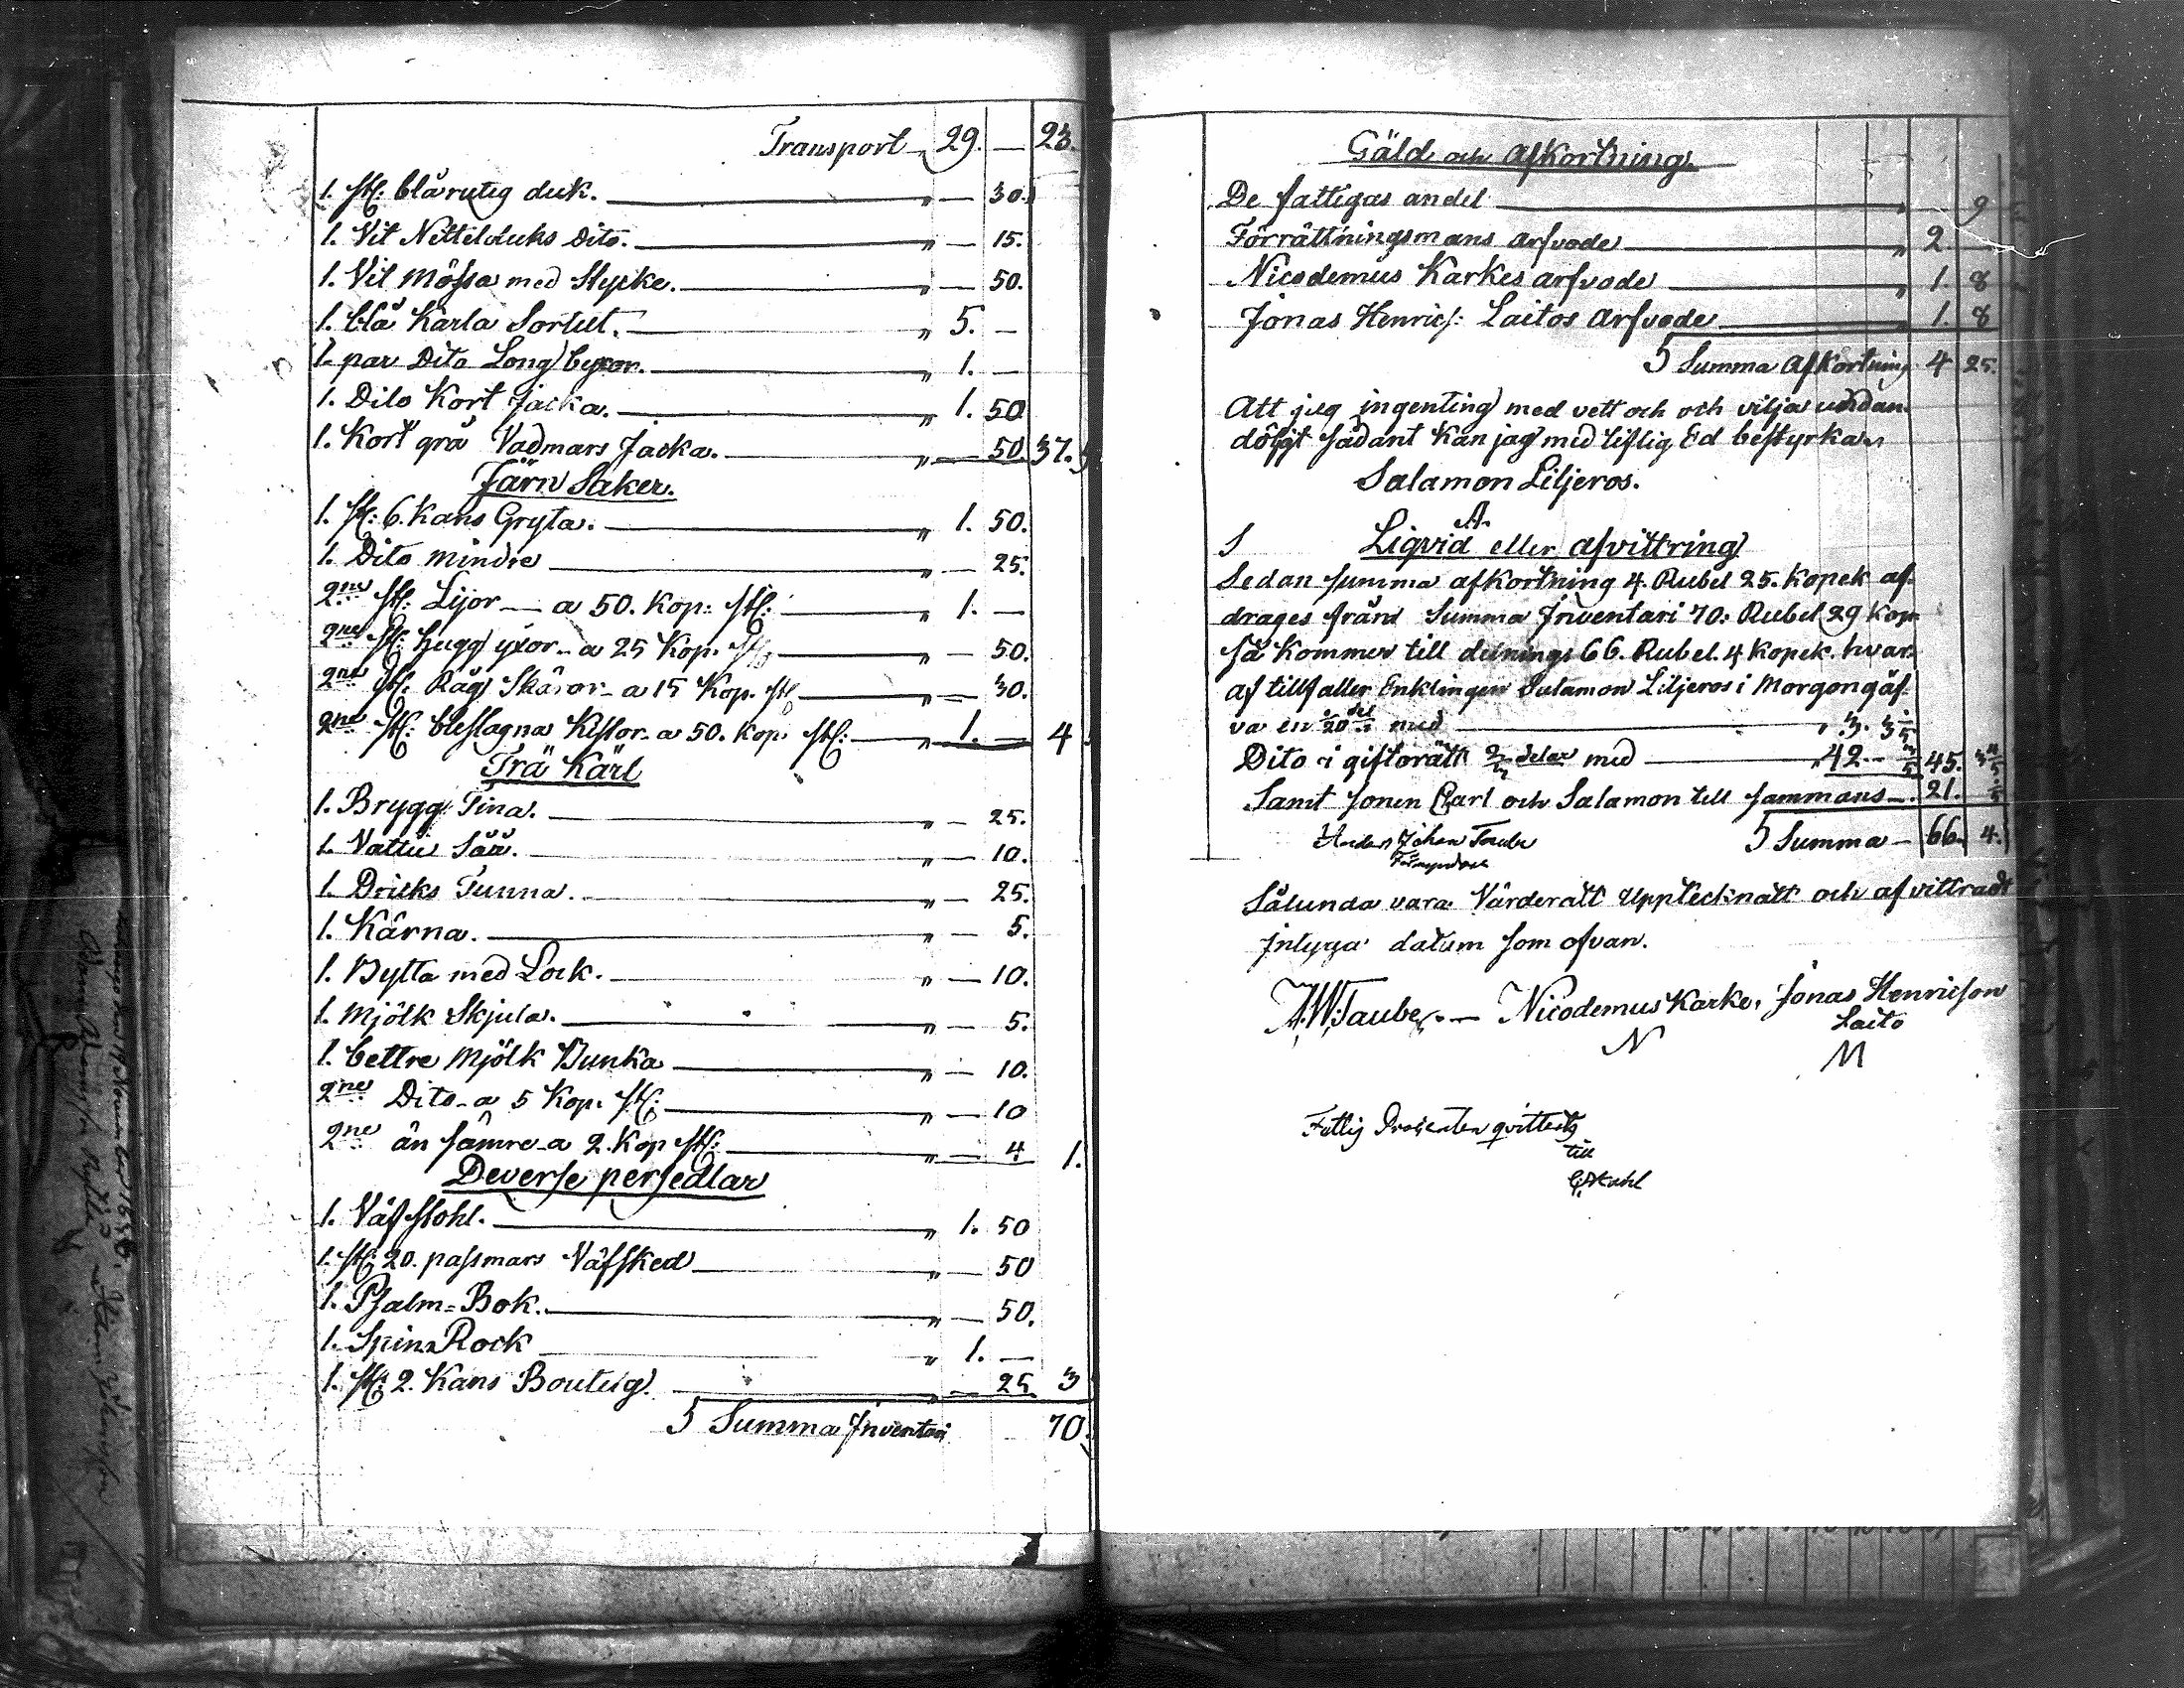 Transport „ 29. — 23.
1. st: blårutig duk. „ — 30.
1. Vit Nettelduks Dito. „ — 15.
1. Vit Mössa med Stycke. „ — 50.
1. blå Karla Sortut. „ 5. —
1. par Dito Long byxor. „ 1. —
1. Dito Kort Jacka. „ 1. 50
1. Kort grå Vadmars Jacka. „ — 50. 37.
Järn Saker.
1. st: 6. Kans Gryta. „ 1. 50.
1. Dito mindre „ — 25.
2ne st: Lijor — a 50. Kop: st: „ 1. —
2ne st: hugg yxor — a 25 Kop. st: „ — 50.
2ne st: Råg Skäror — a 15 Kop. st „ — 30.
2ne st: beslagna Kistor — a 50. Kop. st: „ 1. — 4
Trä Kärl
1. Brygg Tina. „ — 25.
1. Vattu Såå. „ — 10.
1. Dricks Tunna. „ — 25.
1. Kärna. „ — 5.
1. Bytta med Lock. „ — 10.
1. Mjölk Skjula. „ — 5.
1. bettre Mjölk Bunka „ — 10.
2ne Dito — a 5 Kop. st: „ — 10
2ne än sämre — a 2. Kop st: „ — 4 1.
Deverse persedlar
1. Väfstohl. „ 1. 50
1. st: 20. passmars Väfsked „ — 50
1. Psalm=Bok. „ — 50.
1. Spinn Rock „ 1. —
1. st: 2. Kans Boutelg. „ — 25 3
S Summa Inventari 70.
Gäld och afkortning.
De fattigas andel „ 9
Förrättningsmans arfvode „ 2.
Nicodemus Karkes arfvode „ 1. 8
Jonas Henrics: Laitos arfvode „ 1. 8
S Summa afkortning 4 25.
Att jag ingenting med vett och och vilja undan
döljt sådant kan jag med liflig Ed bestyrka
Salamon Liljeros.
S Liqvid eller afvittring
Sedan summa afkortning 4. Rubel 25. kopek af-
drages från Summa Inventari 70. Rubel 29 kop
så kommer till delnings 66. Rubel. 4 kopek. hvar-
af tillfaller Enklingen Salamon Liljeros i Morgongåf-
va en 1/20 del med „ 3.
Dito i giftorätt 2/3 delar med „ 42. — 45.
Samt sonen Carl och Salamon till sammans — 21.
Anders Johan Taube S Summa — 66. 4.
Förmyndare
Sålunda vara Värderatt Upptecknatt och afvittradt
Intyga datum som ofvan.
A.W. Taube. — Nicodemus Karke. Jonas Henricson
Laito
N M
Fattig Procenten qvitteras
till